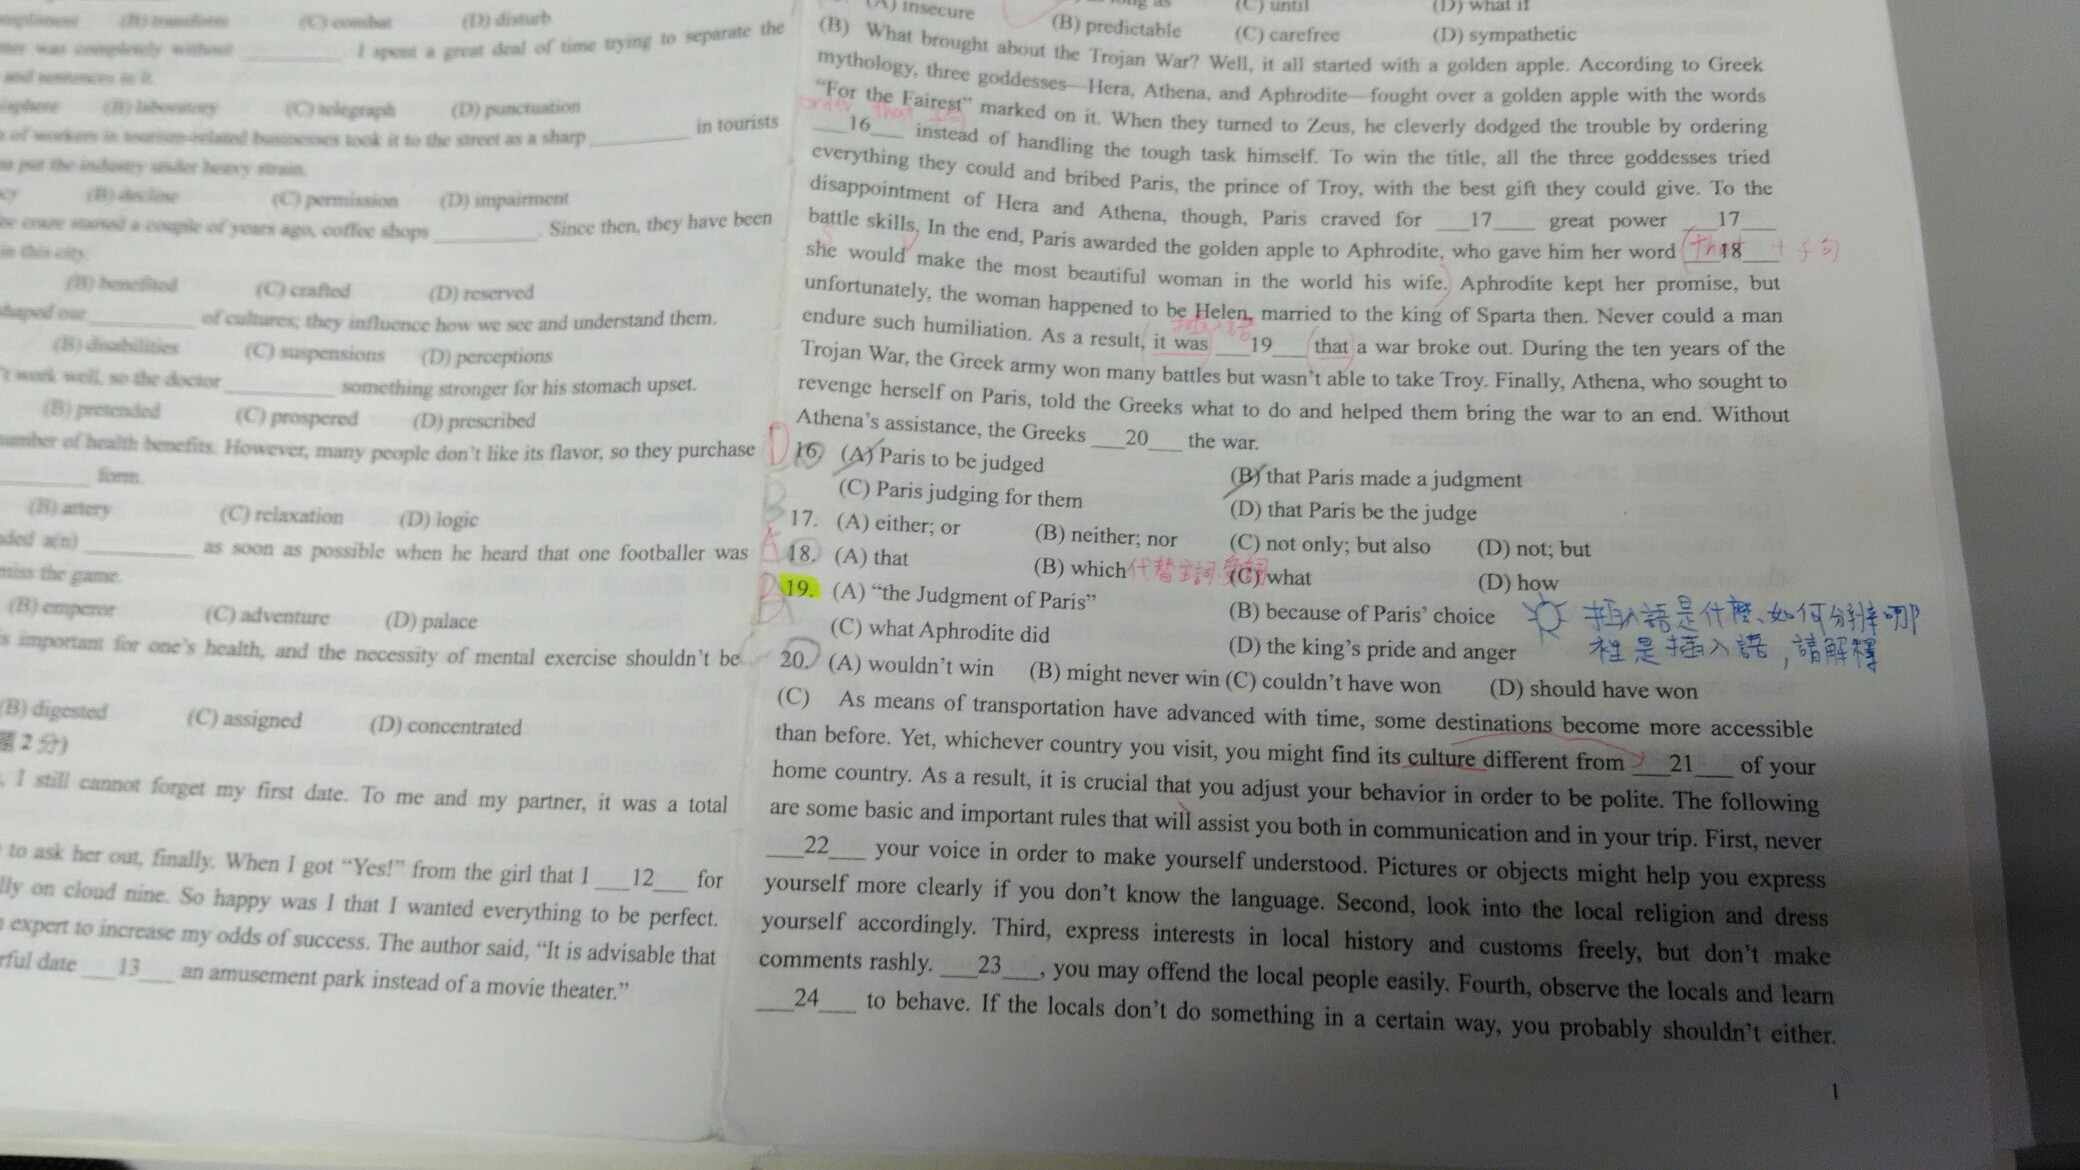 (B) transform (C) combat (D) disturb
was completely without ________. I spent a great deal of time trying to separate the
and sentences in it.
(B) laboratory (C) telegraph (D) punctuation
of workers in tourism-related businesses took it to the street as a sharp ________ in tourists
put the industry under heavy strain.
(B) decline (C) permission (D) impairment
craze started a couple of years ago, coffee shops ________. Since then, they have been
in this city.
(B) benefited (C) crafted (D) reserved
shaped our ________ of cultures; they influence how we see and understand them.
(B) disabilities (C) suspensions (D) perceptions
't work well, so the doctor ________ something stronger for his stomach upset.
(B) pretended (C) prospered (D) prescribed
number of health benefits. However, many people don't like its flavor, so they purchase
________ form.
(B) artery (C) relaxation (D) logic
a(n) ________ as soon as possible when he heard that one footballer was
miss the game.
(B) emperor (C) adventure (D) palace
is important for one's health, and the necessity of mental exercise shouldn't be
(B) digested (C) assigned (D) concentrated
題 2 分)
, I still cannot forget my first date. To me and my partner, it was a total
to ask her out, finally. When I got “Yes!” from the girl that I ___12___ for
lly on cloud nine. So happy was I that I wanted everything to be perfect.
expert to increase my odds of success. The author said, “It is advisable that
rful date ___13___ an amusement park instead of a movie theater.”
(A) insecure (B) predictable (C) carefree (D) sympathetic
as (C) until (D) what if
(B) What brought about the Trojan War? Well, it all started with a golden apple. According to Greek
mythology, three goddesses—Hera, Athena, and Aphrodite—fought over a golden apple with the words
“For the Fairest” marked on it. When they turned to Zeus, he cleverly dodged the trouble by ordering
order that
___16___ instead of handling the tough task himself. To win the title, all the three goddesses tried
everything they could and bribed Paris, the prince of Troy, with the best gift they could give. To the
disappointment of Hera and Athena, though, Paris craved for ___17___ great power ___17___
battle skills. In the end, Paris awarded the golden apple to Aphrodite, who gave him her word ___18___ that + 子句
she would make the most beautiful woman in the world his wife. Aphrodite kept her promise, but
unfortunately, the woman happened to be Helen, married to the king of Sparta then. Never could a man
插入語
endure such humiliation. As a result, it was ___19___ that a war broke out. During the ten years of the
Trojan War, the Greek army won many battles but wasn't able to take Troy. Finally, Athena, who sought to
revenge herself on Paris, told the Greeks what to do and helped them bring the war to an end. Without
Athena's assistance, the Greeks ___20___ the war.
D 16. (A) Paris to be judged (B) that Paris made a judgment
(C) Paris judging for them (D) that Paris be the judge
B 17. (A) either; or (B) neither; nor (C) not only; but also (D) not; but
A 18. (A) that (B) which 代替主詞 受詞 (C) what (D) how
19. (A) “the Judgment of Paris” (B) because of Paris' choice
(C) what Aphrodite did (D) the king's pride and anger
插入語是什麼、如何分辨哪
裡是插入語,請解釋
20. (A) wouldn't win (B) might never win (C) couldn't have won (D) should have won
(C) As means of transportation have advanced with time, some destinations become more accessible
than before. Yet, whichever country you visit, you might find its culture different from ___21___ of your
home country. As a result, it is crucial that you adjust your behavior in order to be polite. The following
are some basic and important rules that will assist you both in communication and in your trip. First, never
___22___ your voice in order to make yourself understood. Pictures or objects might help you express
yourself more clearly if you don't know the language. Second, look into the local religion and dress
yourself accordingly. Third, express interests in local history and customs freely, but don't make
comments rashly. ___23___, you may offend the local people easily. Fourth, observe the locals and learn
___24___ to behave. If the locals don't do something in a certain way, you probably shouldn't either.
1